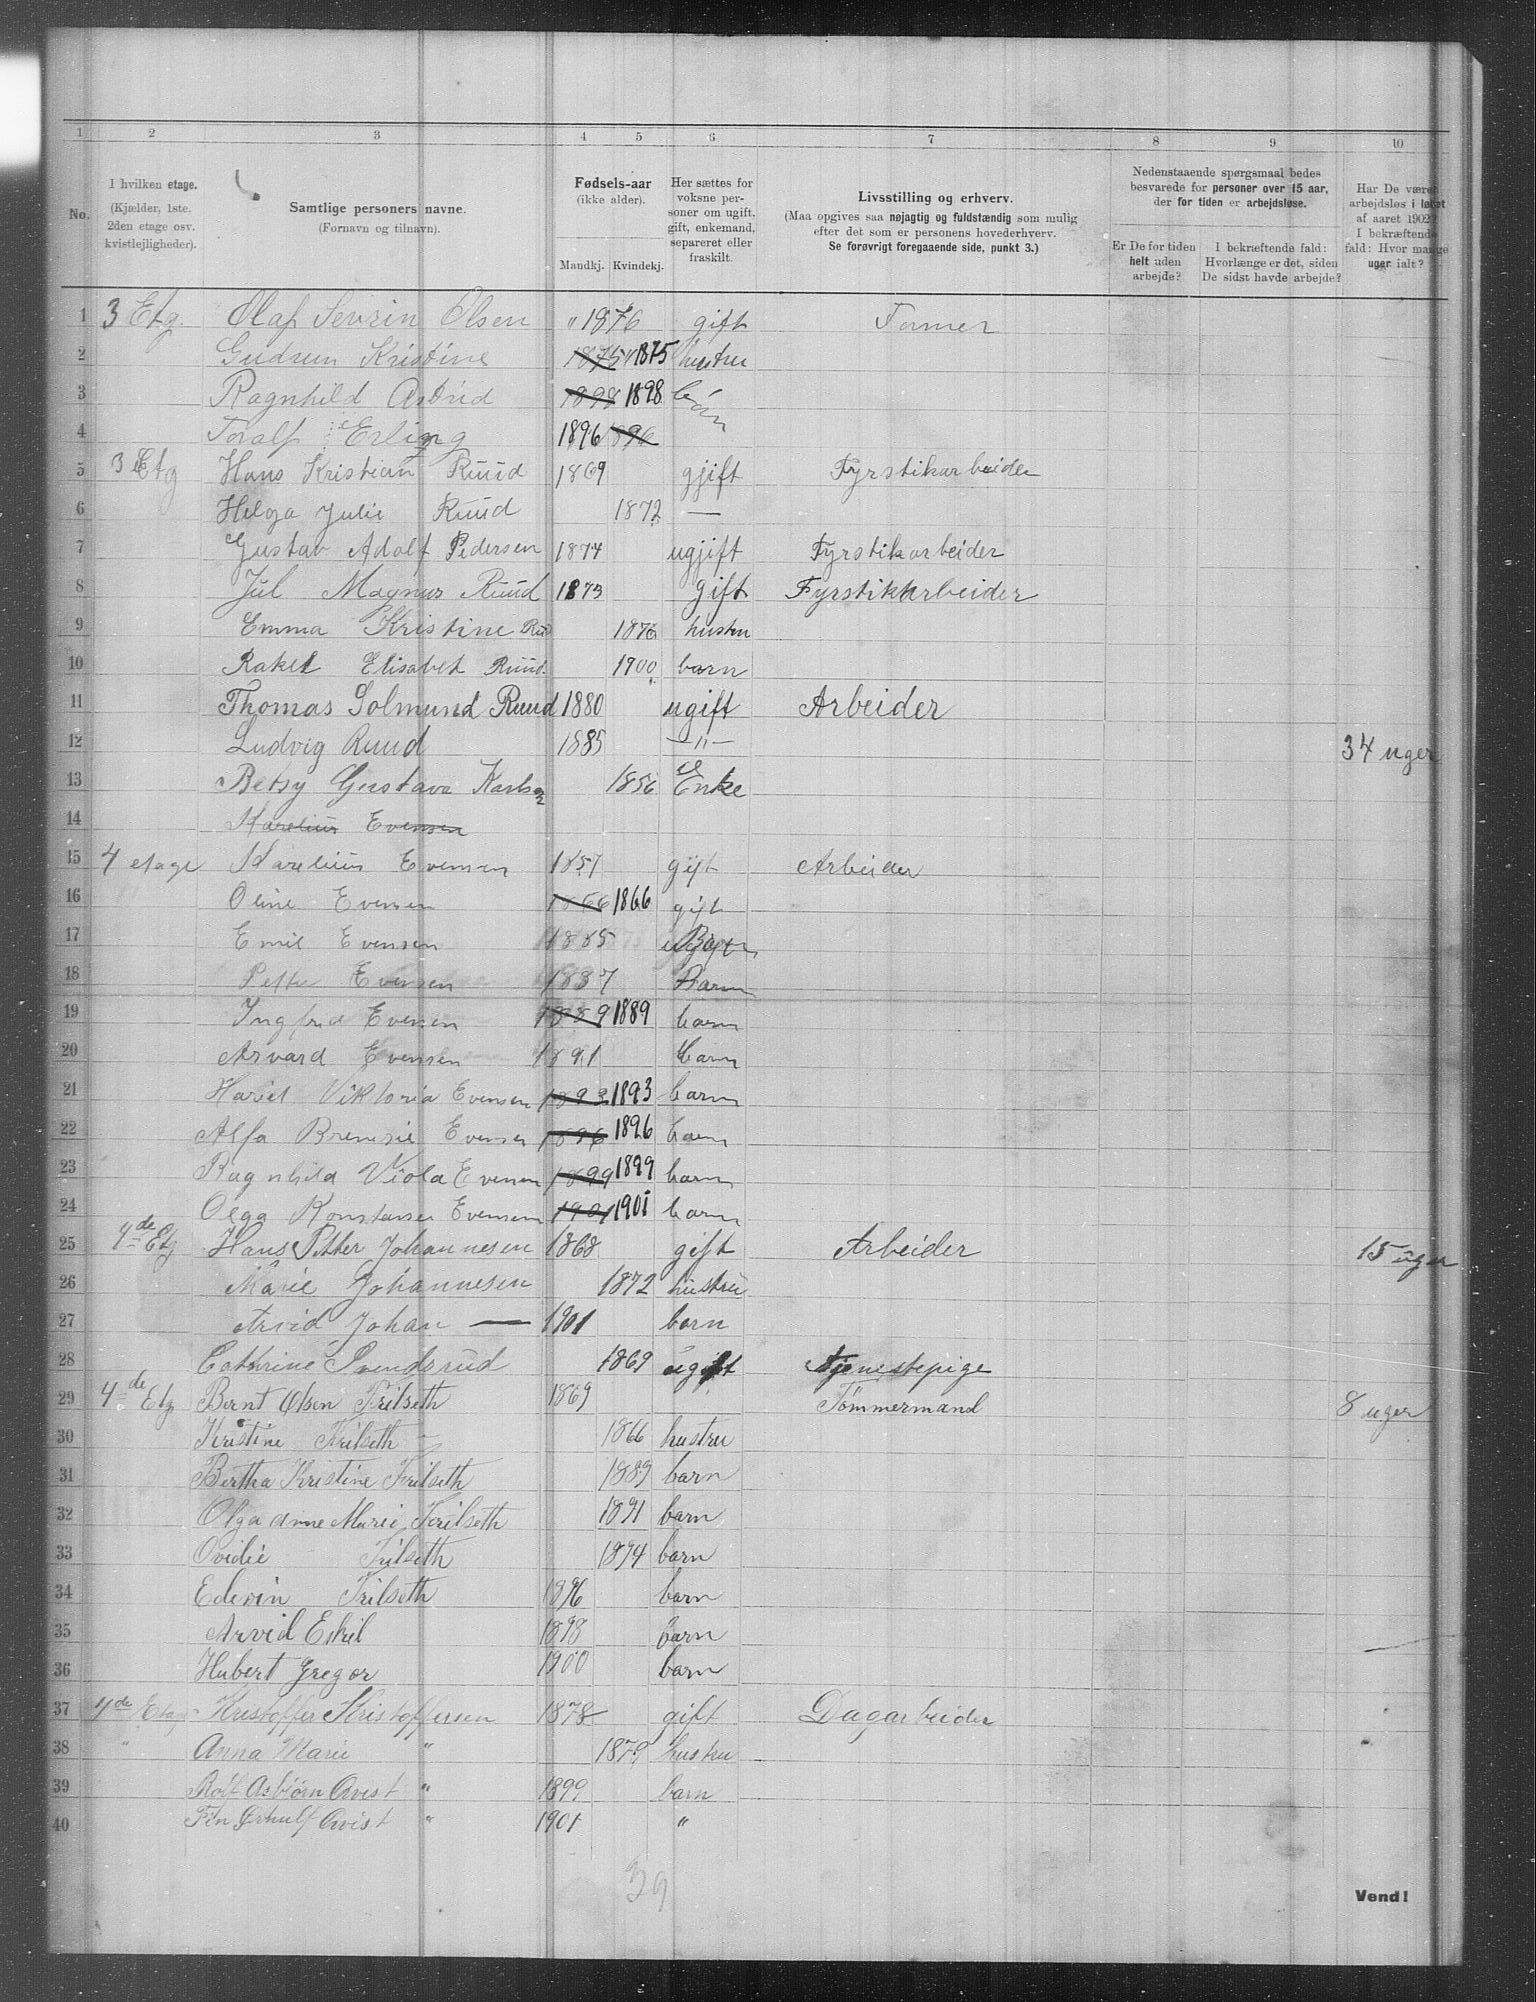 1 2 3 4 5 6 7 8 9 10
No.
I hvilken etage.
(Kjælder, 1ste.
2den etage osv.
kvistlejligheder).
Samtlige personers navne.
(Fornavn og tilnavn).
Fødsels-aar
(ikke alder).
Mandkj. Kvindekj.
Her sættes for
voksne per-
soner om ugift,
gift, enkemand,
separeret eller
fraskilt.
Livsstilling og erhverv.
(Maa opgives saa nøjagtig og fuldstændig som mulig
efter det som er personens hovederhverv.
Se forøvrigt foregaaende side, punkt 3.)
Nedenstaaende spørgsmaal bedes
besvarede for personer over 15 aar,
der for tiden er arbejdsløse.
Er De for tiden
helt uden
arbejde?
I bekræftende fald:
Hvorlænge er det, siden
De sidst havde arbejde?
Har De været
arbejdsløs i løbet
af aaret 1902?
I bekræftende
fald: Hvor mange
uger ialt?
1 3 Etg. Olaf Sevrin Olsen " 1876 gift Former
2 Gudrun Kristine 1875 1875 hustru
3 Ragnhild Astrid 1898 1898 barn
4 Toralf Erling 1896 896
5 3 Etg Hans Kristian Ruud 1869 gjift Fyrstikarbeider
6 Helga Julie Ruud 1872 —
7 Gustav Adolf Pedersen 1874 ugjift Fyrstikarbeider
8 Jul Magnus Ruud 1873 gift Fyrstikkarbeider
9 Emma Kristine Ruud 1876 hustru
10 Rakel Elisabet Ruud. 1900 barn
11 Thomas Solmund Ruud 1880 ugift Arbeider
12 Ludvig Ruud 1885 —"— 34 uger
13 Betsy Gustava Karlsen 1856 Enke
14 Karelius Evensen
15 4 etage Karelius Evensen 1857 gift Arbeider
16 Oline Evensen 1866 1866 gift
17 Emil Evensen 1885
18 Petter Evensen 1887 Barn
19 Ingfrid Evensen 1889 1889 barn
20 Arvard Evensen 1891 barn
21 Hariet Viktoria Evensen 1893 1893 barn
22 Alfa Evensen 1896 1896 barn
23 Ragnhild Viola Evensen 1899 1899 barn
24 Olga Konstanse Evensen 1901 1901 barn
25 4de Etg Hans Petter Johannesen 1868 gift Arbeider 15 uger
26 Marie Johannesen 1872 hustru
27 Arvid Johan — 1901 barn
28 Cathrine Svendsrud 1869 ugift Tjenestepige
29 4de Etg Bernt Olsen Trilseth 1869 Tömmermand 8 uger
30 Kristine Trilseth 1866 hustru
31 Bertha Kristine Trilseth 1889 barn
32 Olga Anne Marie Trilseth 1891 barn
33 Ovidie Trilseth 1894 barn
34 Edevin Trilseth 1896 barn
35 Arvid Eskil 1898 barn
36 Hubert Gregor 1900 barn
37 4de Etag Kristoffer Kristoffersen 1878 gift Dagarbeider
38 " Anna Marie " 1879 hustru
39 Rolf Asbjørn Qvist " 1899 barn
40 Fin Qvist " 1901 "
39
Vend!